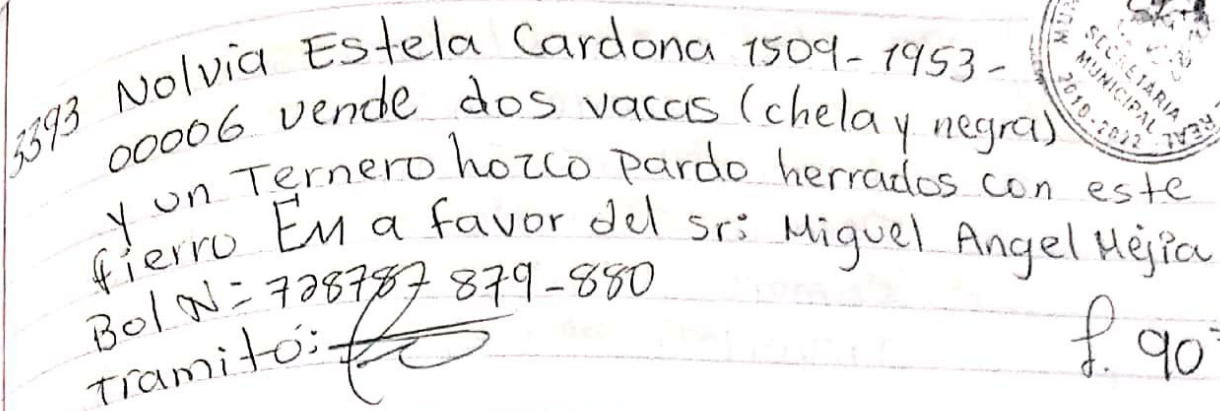 3393 Nolvia Estela Cardona 1509-1953-
00006 vende dos vacas (chela y negra)
y un Ternero hozco Pardo herrados con este
fierro EM a favor del sr: Miguel Angel Mejia
Bol N= 728787 879-880
Tramito:
f. 90
SECRETARIA
MUNICIPAL
2018-2022
REAL